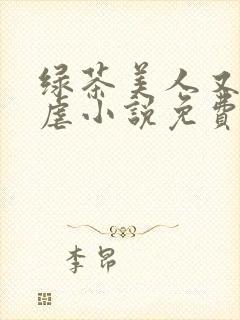 绿茶美人又
虐小説免費
李昂